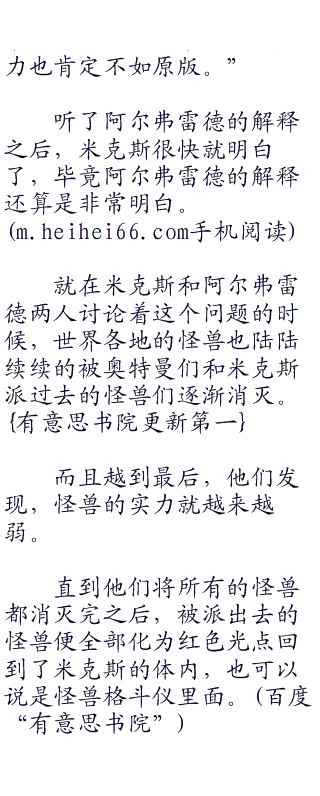 力也肯定不如原版。”
听了阿尔弗雷德的解释
之后，米克斯很快就明白
了，毕竟阿尔弗雷德的解释
还算是非常明白。
(m.heihei66.com手机阅读)
就在米克斯和阿尔弗雷
德两人讨论着这个问题的时
候，世界各地的怪兽也陆陆
续续的被奥特曼们和米克斯
派过去的怪兽们逐渐消灭。
{有意思书院更新第一}
而且越到最后，他们发
现，怪兽的实力就越来越
弱。
直到他们将所有的怪兽
都消灭完之后，被派出去的
怪兽便全部化为红色光点回
到了米克斯的体内，也可以
说是怪兽格斗仪里面。(百度
“有意思书院”)